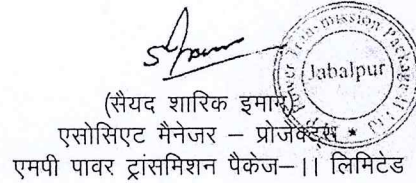 Power Transmission Package II Ltd
Jabalpur
(सैयद शारिक इमाम)
एसोसिएट मैनेजर – प्रोजेक्ट्स
एमपी पावर ट्रांसमिशन पैकेज–।। लिमिटेड